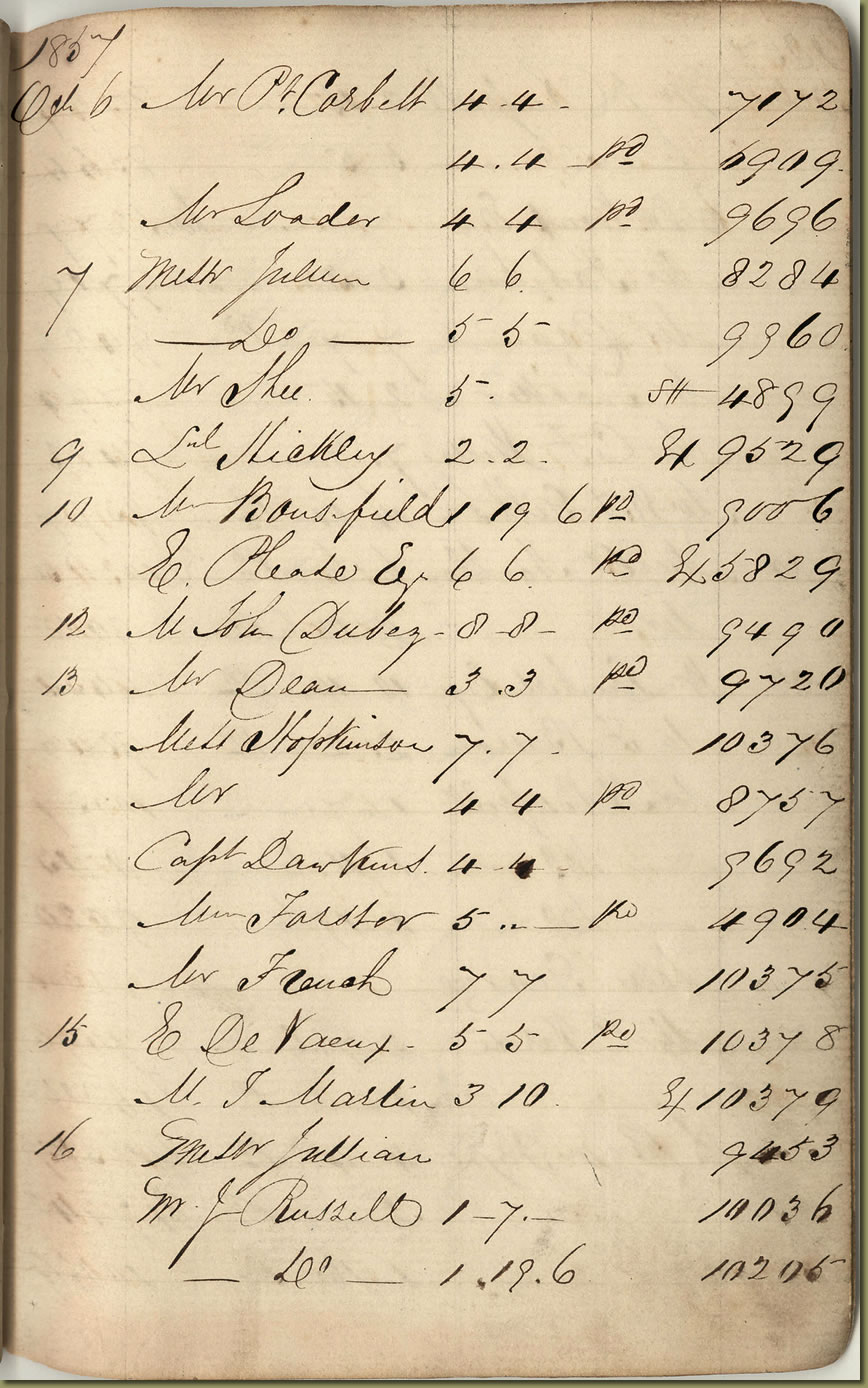 1857
Oct 6 Mr Pk. Corbett 4 4 - 7172
4 . 4 - pd 6909
Mr Loader 4 4 pd 9696
7 Messr Jullien 6 6 8284
— Do — 5 5 9960
Mr Shee 5 . 4899
9 Lnl Hickley 2 . 2 . 9529
10 Bousfield 1 19 6 pd 9006
E. Please Esqr 6 6 pd 5829
12 M John Dubez - 8 - 8 - pd 9490
13 Mr Dean 3 . 3 pd 9720
Mess Hopkinson 7 . 7 - 10376
Mr 4 4 pd 8757
Capt Dawkins. 4 - 4 - 9692
Forster 5 .. — pd 4904
Mr French 7 7 10375
15 E De Vaeux - 5 5 pd 10378
M. T Martin 3 10 . 10379
16 Messr Jullian 9453
Mr J Russell 1 - 7 . — 10036
— Do — 1 . 19 . 6 10205